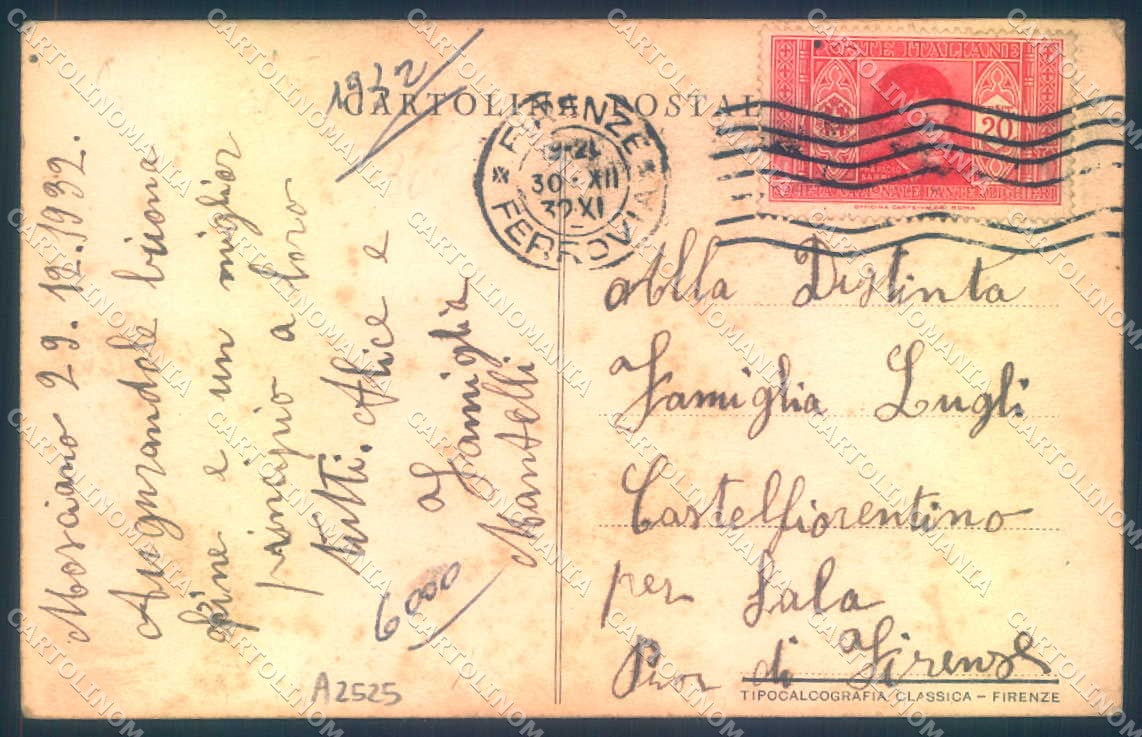 1932
CARTOLINA POSTALE
FIRENZE
30·XII
32 XI
FERROVIA
POSTE ITALIANE
CENT
20
OFFICINA CARTE-VALORI ROMA
Mosciano 29.12.1932.
Augurandole buona
fine e un miglior
principio a loro
tutti. Alice e
famiglia
Mantelli.
6000
A2525
Alla Distinta
Famiglia Lugli
Castelfiorentino
per Sala
di Firenze
TIPOCALCOGRAFIA CLASSICA – FIRENZE
CARTOLINOMANIA